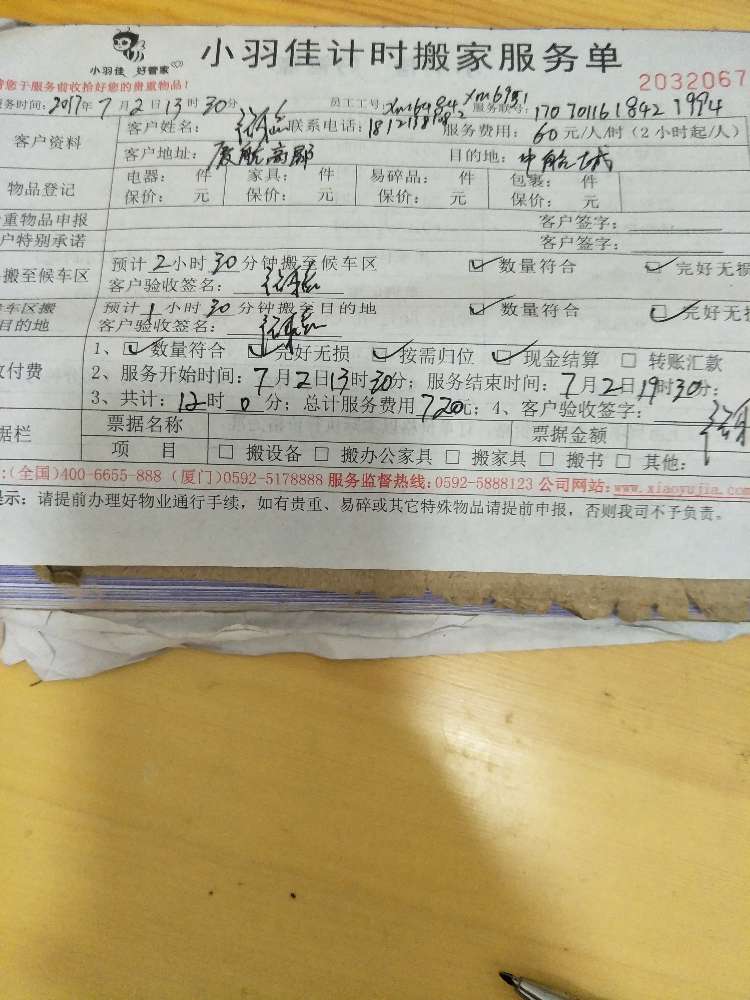 小羽佳 好管家
小羽佳计时搬家服务单
请您于服务前收拾好您的贵重物品!
2032067
服务时间: 2017年7月2日13时30分 员工工号: xm6484 xm6951 服务联号: 17070116184271994
客户资料 客户姓名: 联系电话: 服务费用: 60元/人/时(2小时起/人)
客户地址: 厦航高郡 目的地: 中航城
物品登记 电器: 件 家具: 件 易碎品: 件 包裹: 件
保价: 元 保价: 元 保价: 元 保价: 元
重物品申报 客户签字:
户特别承诺 客户签字:
搬至候车区 预计2小时30分钟搬至候车区 数量符合 完好无损
客户验收签名:
车区搬 预计1小时30分钟搬至目的地 数量符合 完好无损
目的地 客户验收签名:
1、数量符合 完好无损 按需归位 现金结算 转账汇款
付费 2、服务开始时间: 7月2日13时30分; 服务结束时间: 7月2日19时30分;
3、共计: 12时0分; 总计服务费用720元; 4、客户验收签字:
据栏 票据名称 票据金额
项 目 搬设备 搬办公家具 搬家具 搬书 其他:
:(全国)400-6655-888 (厦门)0592-5178888 服务监督热线:0592-5888123 公司网站: www.xiaoyujia.com
示: 请提前办理好物业通行手续, 如有贵重、易碎或其它特殊物品请提前申报, 否则我司不予负责。